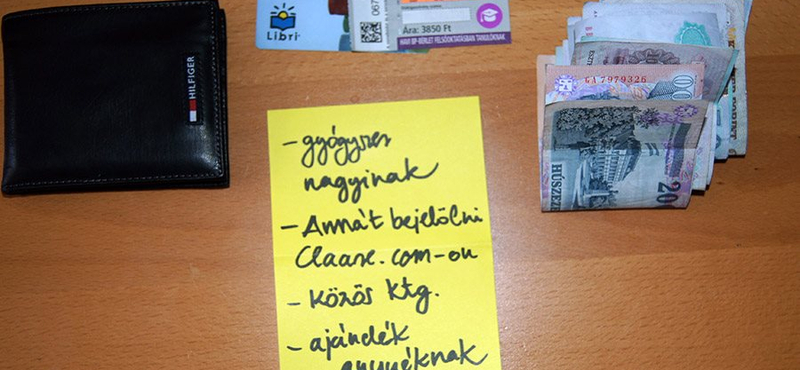 HILFIGER
Libri
067
Ára: 3850 Ft
HAVI BP-BÉRLET FELSŐOKTATÁSBAN TANULÓKNAK
- gyógyszer
nagyinak
- Annát bejelölni
Claare.com-on
- Közös ktg.
- ajándék
anyuéknak
GA 7979326
HÚSZEZER
20